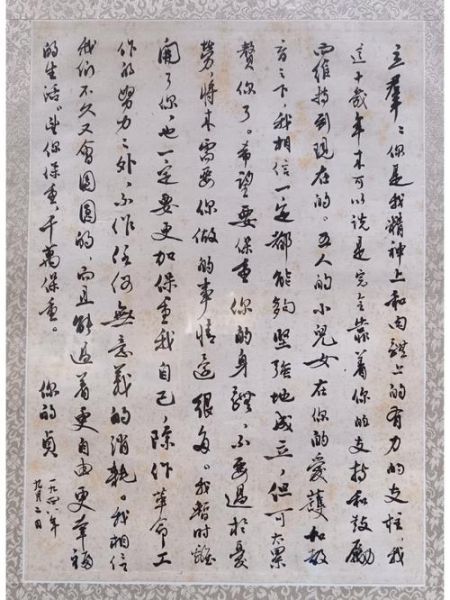 立羣：你是我精神上和肉體上的有力的支柱，我
這十幾年來可以說是完全靠着你的支持和鼓勵
而維持到現在的。五人的小兒女在你的愛護和教
育之下，我相信一定都能夠堅強地成立，但可太累
贅你了。希望要保重你的身體，不要過於憂
勞，將來需要你做的事情還很多。我暫時離
開了你，也一定要更加保重我自己，除作革命工
作的努力之外，不作任何無意義的消耗。我相信
我們不久又會團圓的，而且能過着更自由更幸福
的生活。望你保重，千萬保重。
你的貞
一九四八年